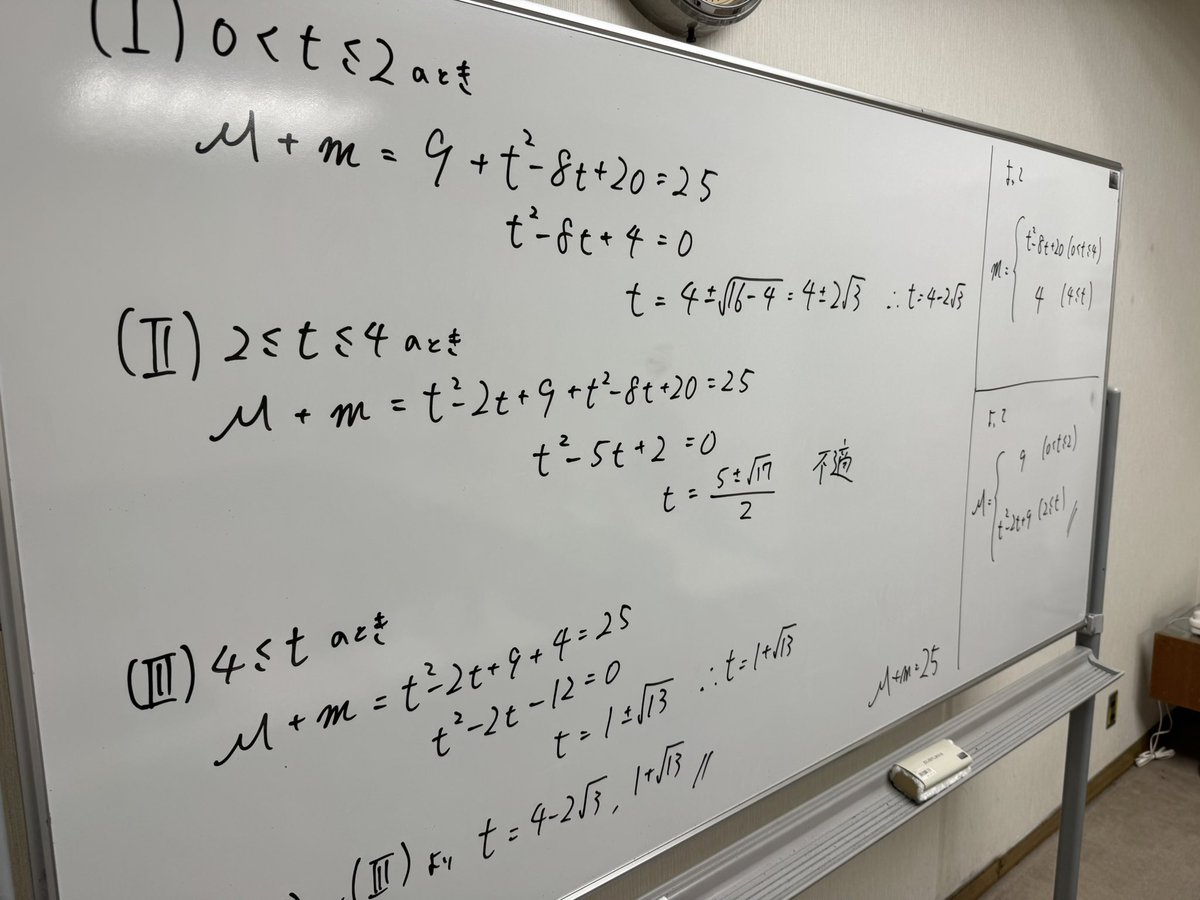 (I) 0<t≦2のとき
M+m=9+t²-8t+20=25
t²-8t+4=0
t=4±√16-4=4±2√3 ∴t=4-2√3
(II) 2≦t≦4のとき
M+m=t²-2t+9+t²-8t+20=25
t²-5t+2=0
t=5±√17/2 不適
(III) 4≦tのとき
M+m=t²-2t+9+4=25
t²-2t-12=0
t=1±√13 ∴t=1+√13
(III)より t=4-2√3, 1+√13 //
よって
m={t²-8t+20 (0<t≦4)
4 (4≦t)
よって
M={9 (0<t≦2)
t²-2t+9 (2≦t) //
M+m=25